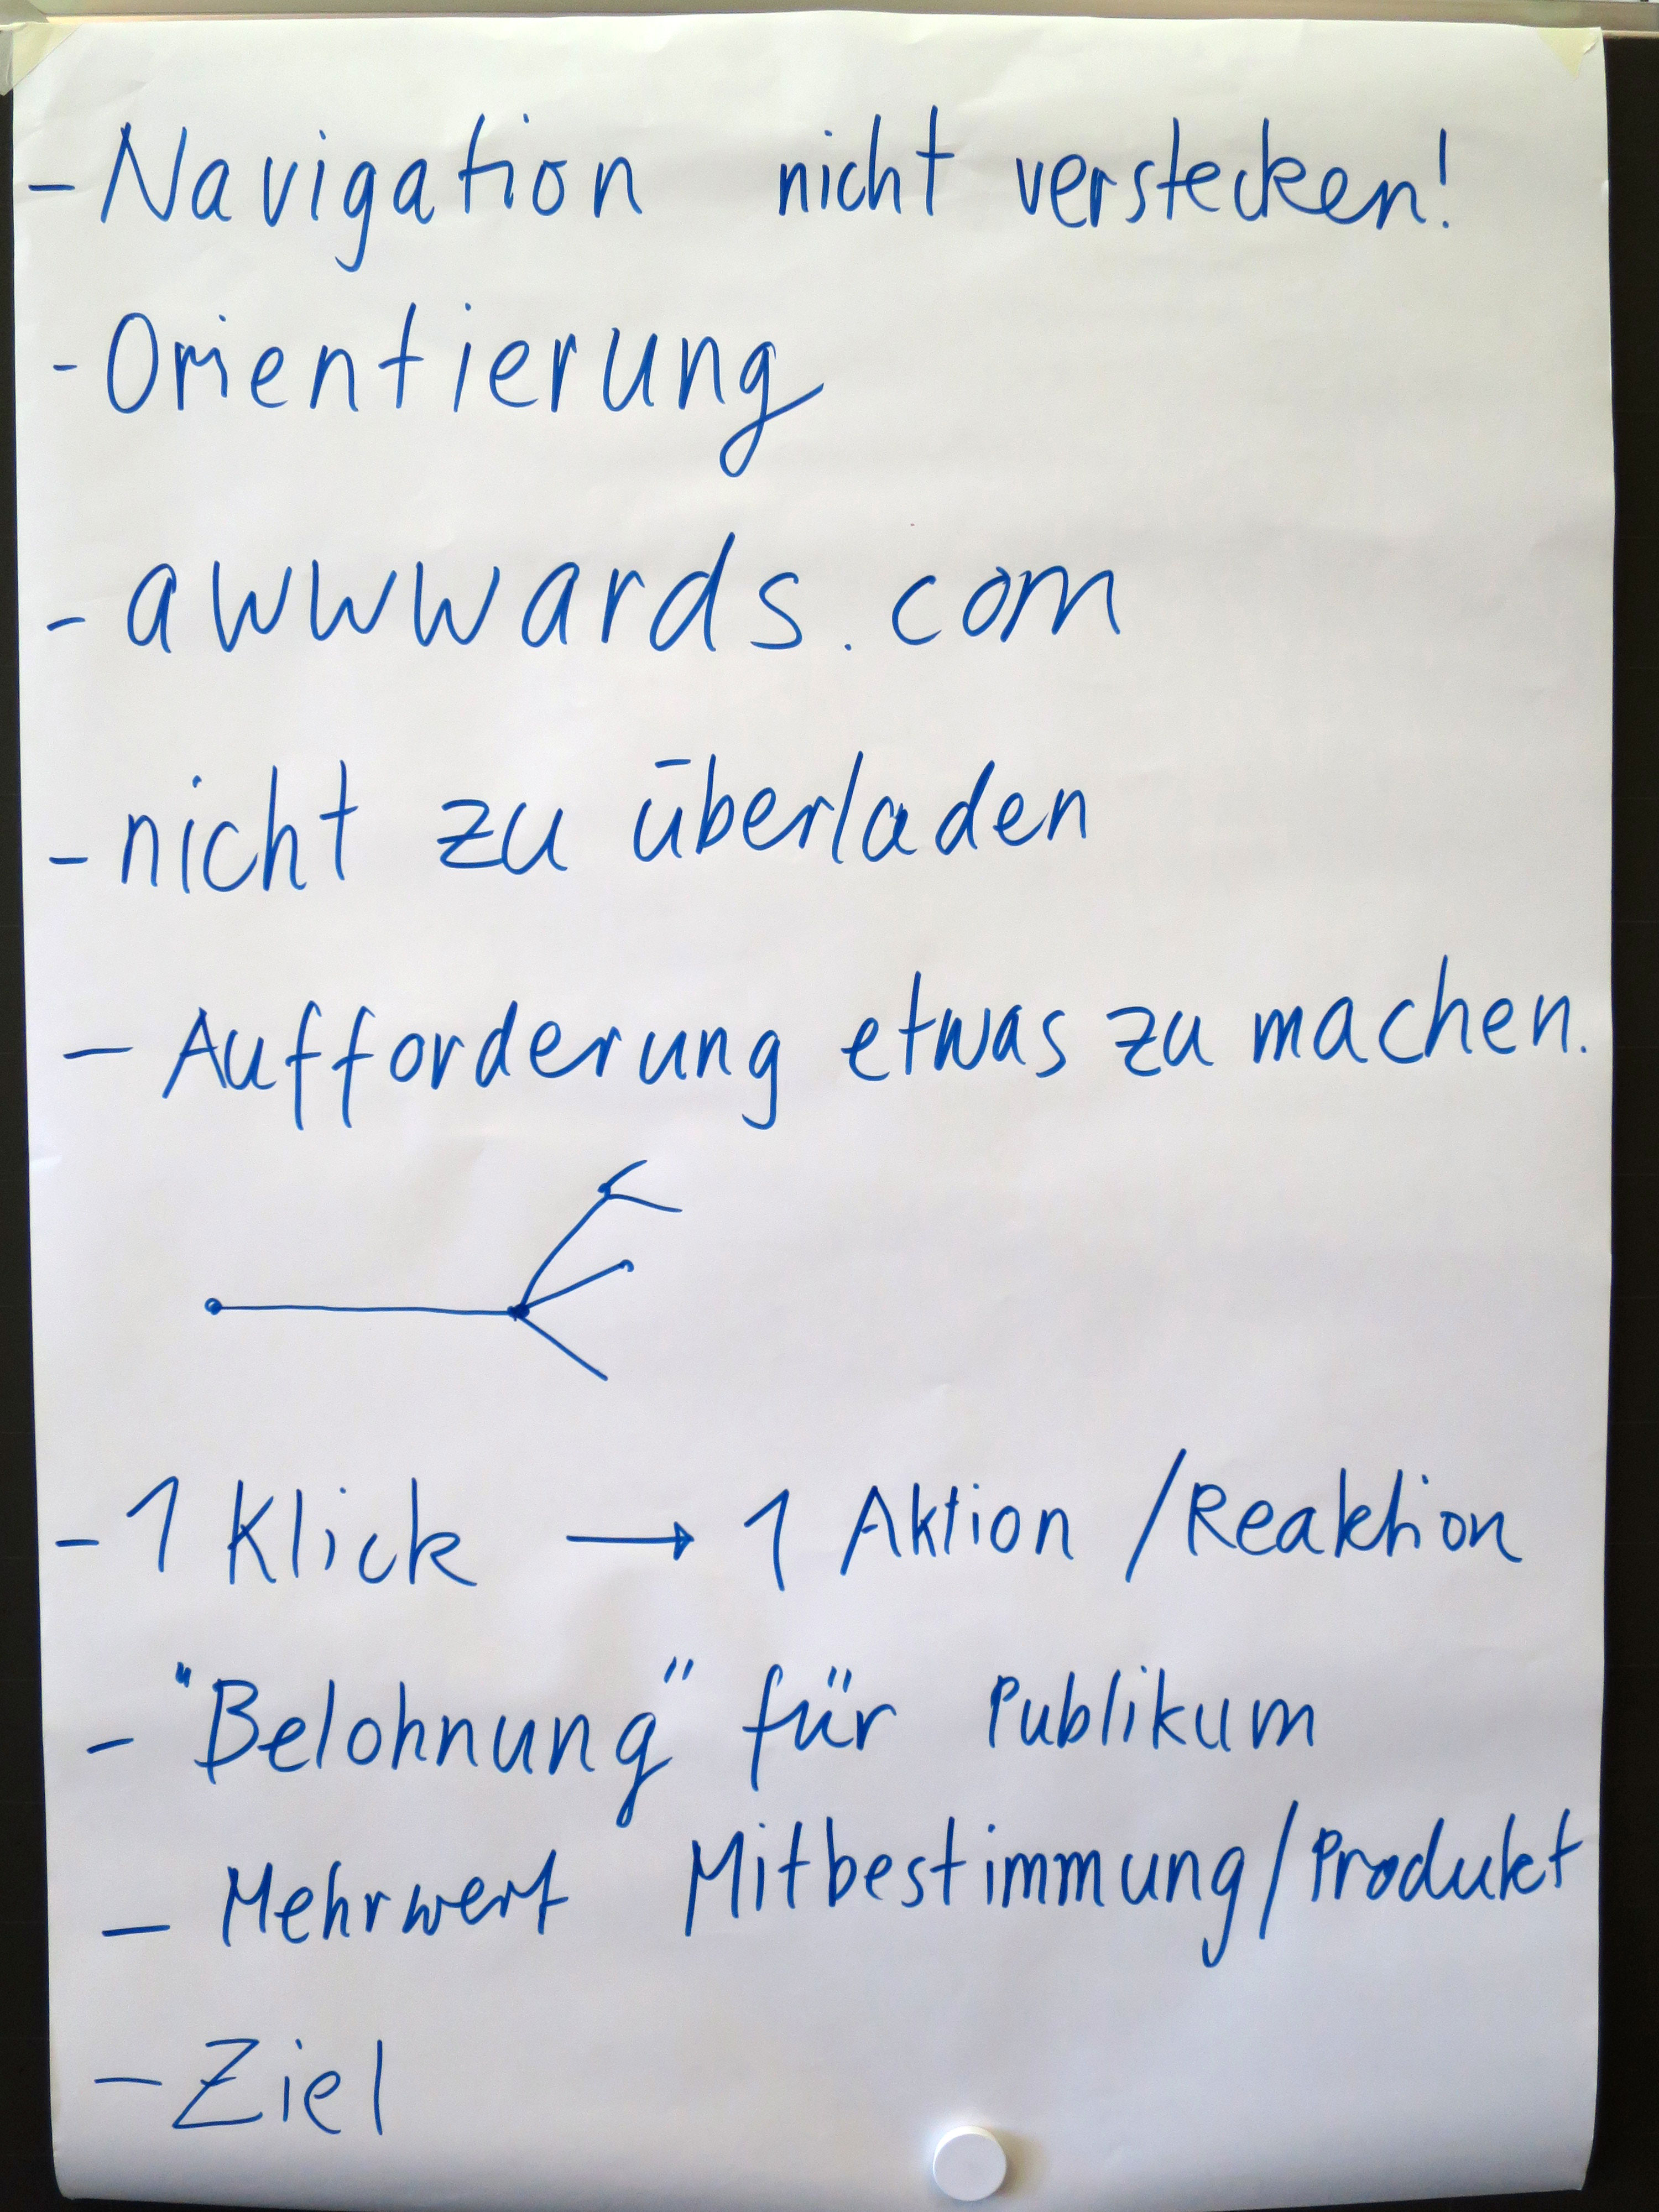 - Navigation nicht verstecken!
- Orientierung
- awwwards.com
- nicht zu überladen
- Aufforderung etwas zu machen.
- 1 Klick → 1 Aktion / Reaktion
- "Belohnung" für Publikum
- Mehrwert Mitbestimmung/Produkt
- Ziel